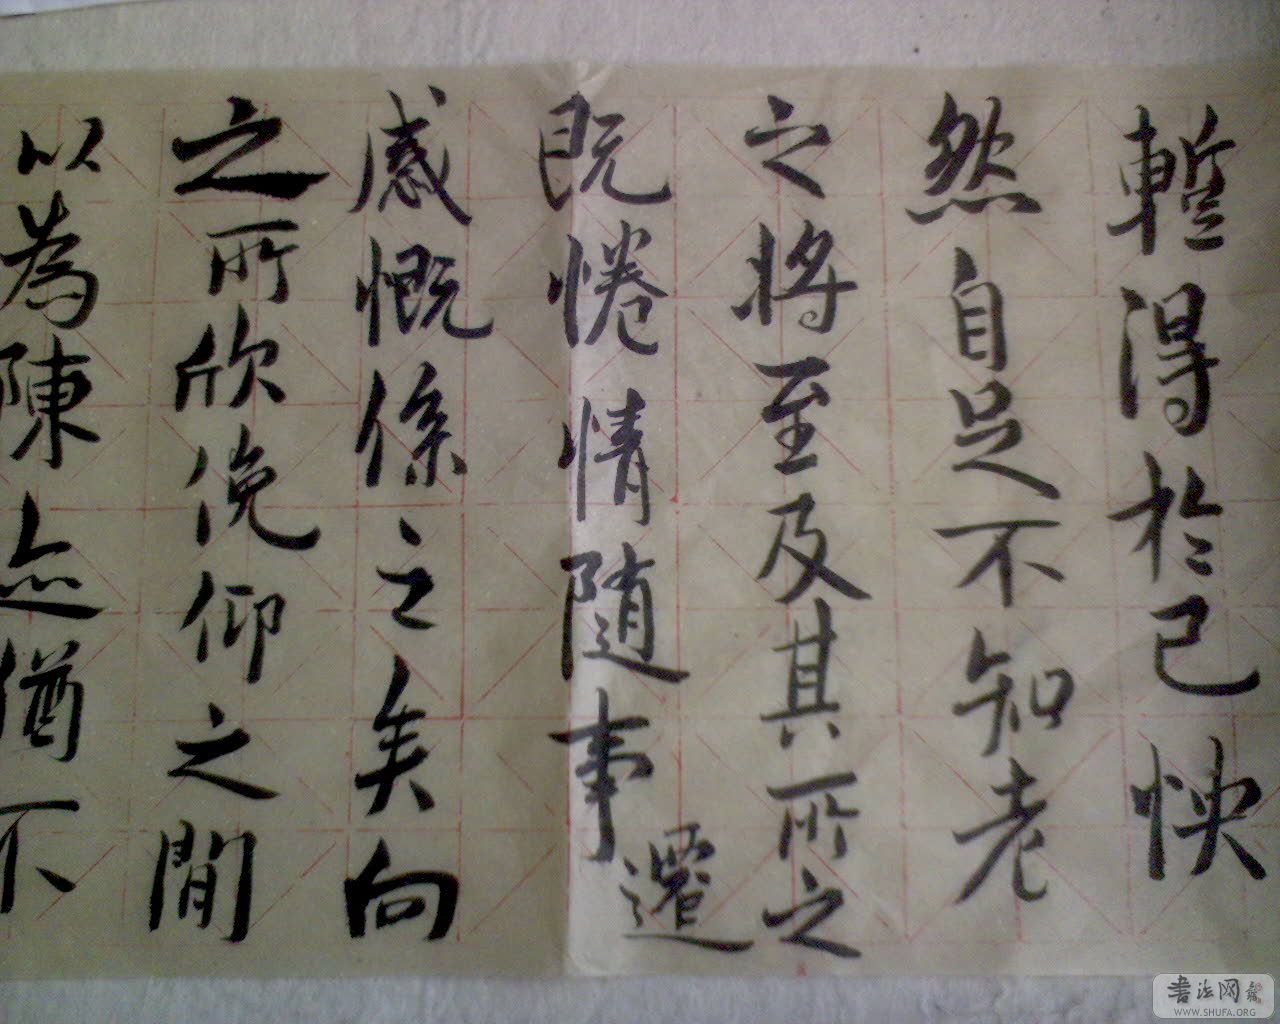 暫得於己怏
然自足不知老
之將至及其所之
既惓情随事遷
感慨係之矣向
之所欣俛仰之閒
以為陳迹猶不
书法网
WWW.SHUFA.ORG